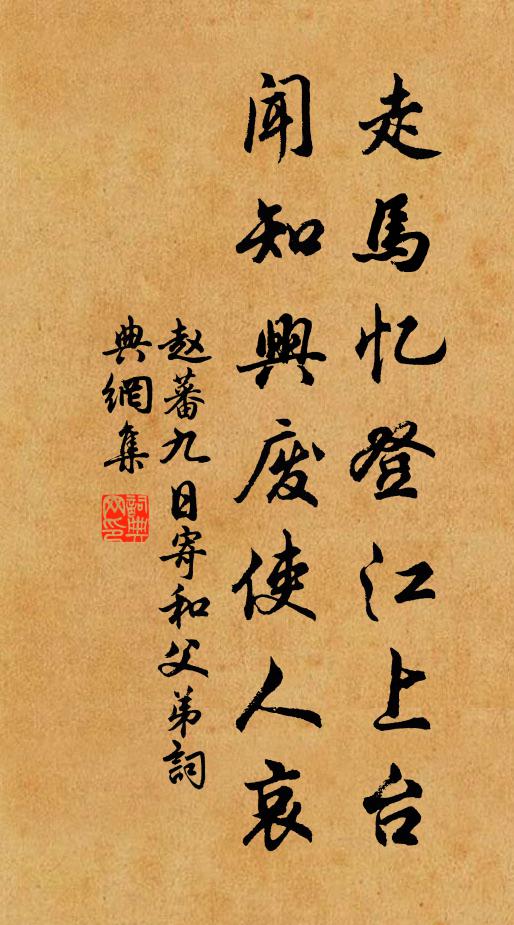 走馬忆登江上台
闻知興废使人哀
赵蕃九日寄和父弟詞
典網集
詞典
网印